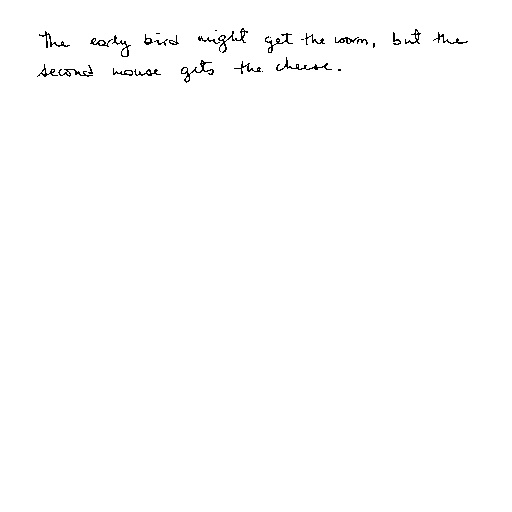 The early bird might get the worm, but the
second mouse gets the cheese.